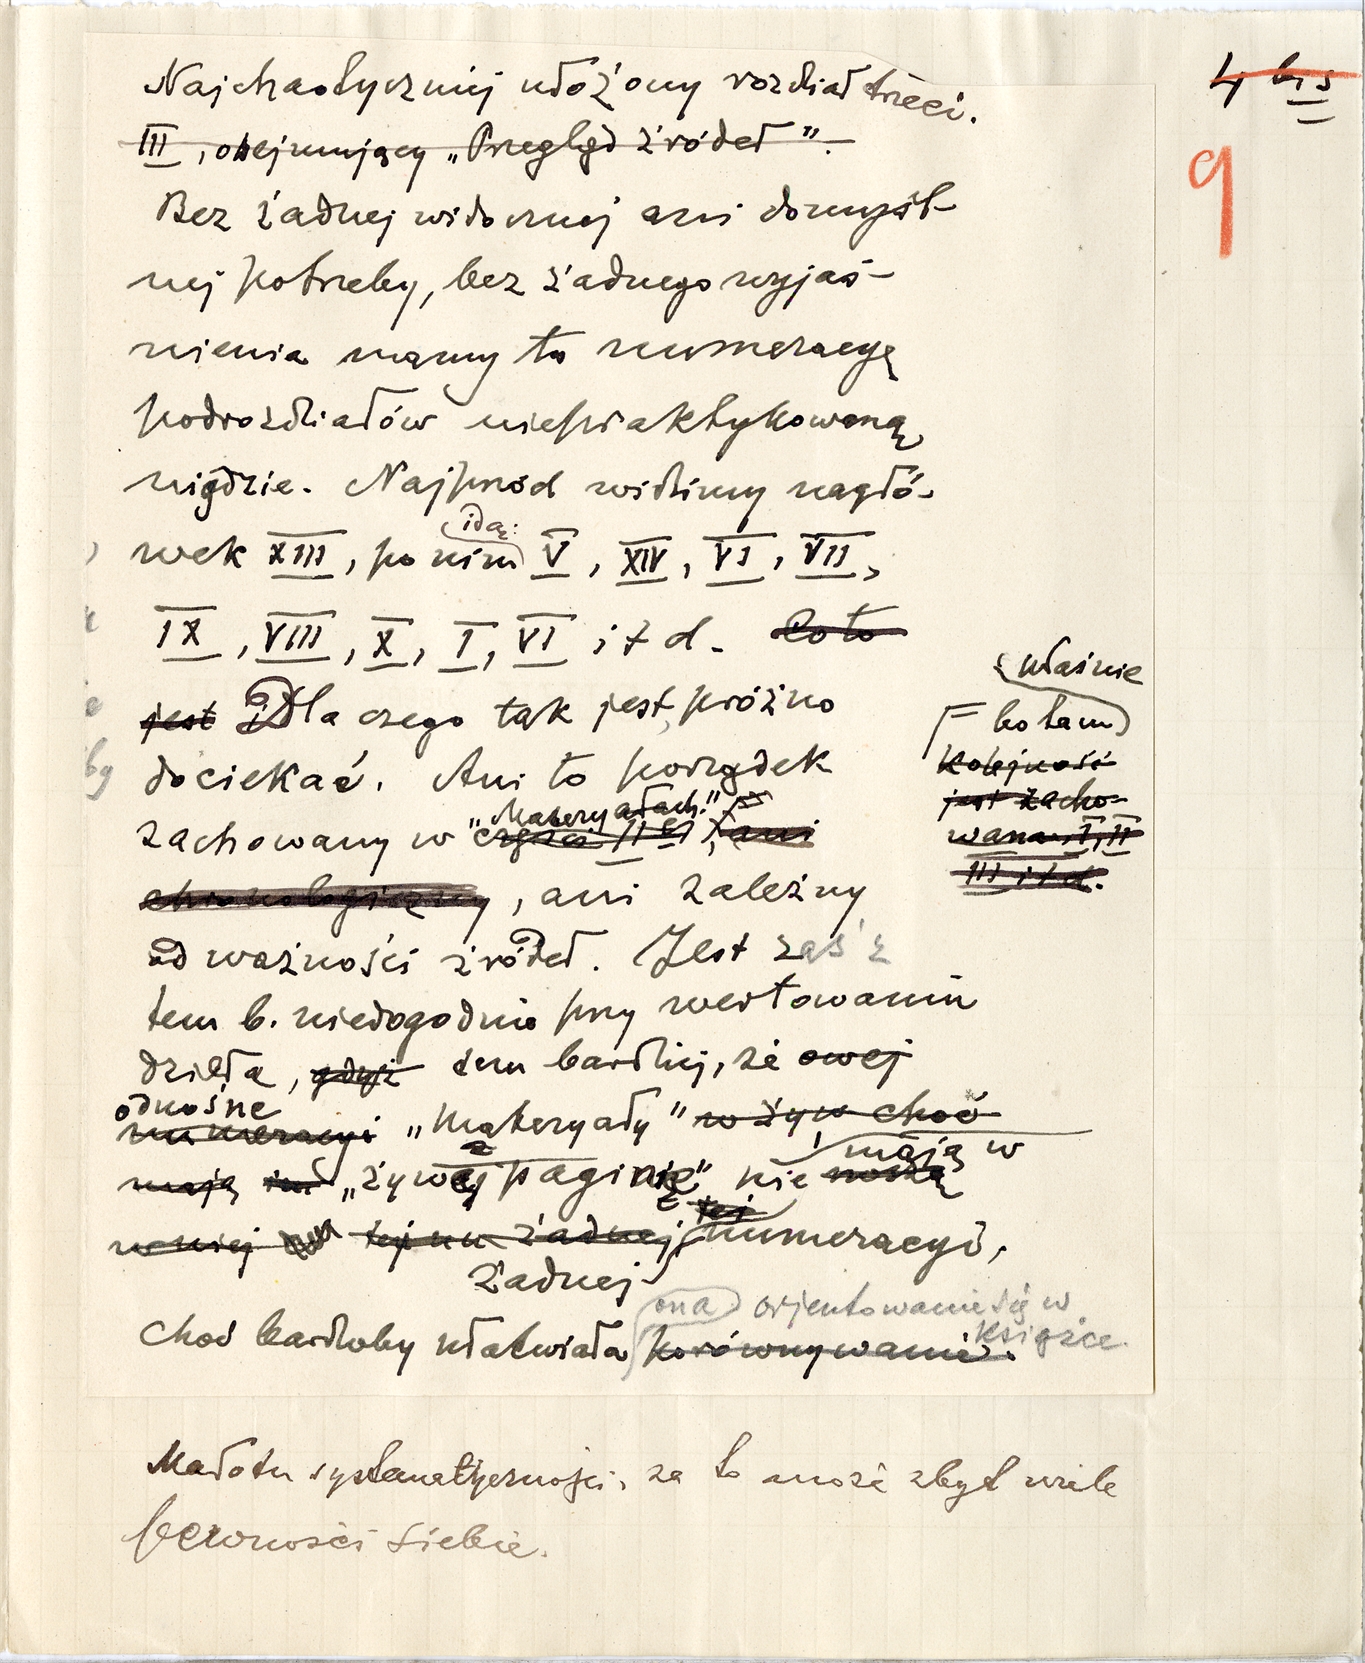 4 bis
9
Najchaotyczniej ułożony rozdział trzeci.
III, obejmujący „Przegląd źródeł”.
Bez żadnej widocznej ani domyśl-
nej potrzeby, bez żadnego wyjaś-
nienia mamy tu numeracyę
podrozdziałów niepraktykowaną
nigdzie. Najprzód widzimy nagłó-
idą:
wek XIII, po nim V, XIV, VI, VII,
IX, VIII, X, I, VI i t d. Co to
jest Dla czego tak jest, próżno
dociekać. Ani to porządek
właśnie
bo tam
kolejność
jest zacho-
wana I, II
III i t d.
„Materyałach”
zachowany w części II ej, ani
chronologiczny, ani zależny
od ważności źródeł. Jest zaś z
tem b. niedogodnie przy wertowaniu
dzieła, gdyż tem bardziej, że owej
odnośne
numeracyi „Materyały” w żyw choć
mają w
mają „żywej paginie” nie noszą
tej
w niej tej nu żadnej numeracyi,
żadnej
ona orjentowanie się w
książce.
choć bardzoby ułatwiała porównywanie.
Mało tu systematyczności, za to może zbyt wiele
pewności siebie.